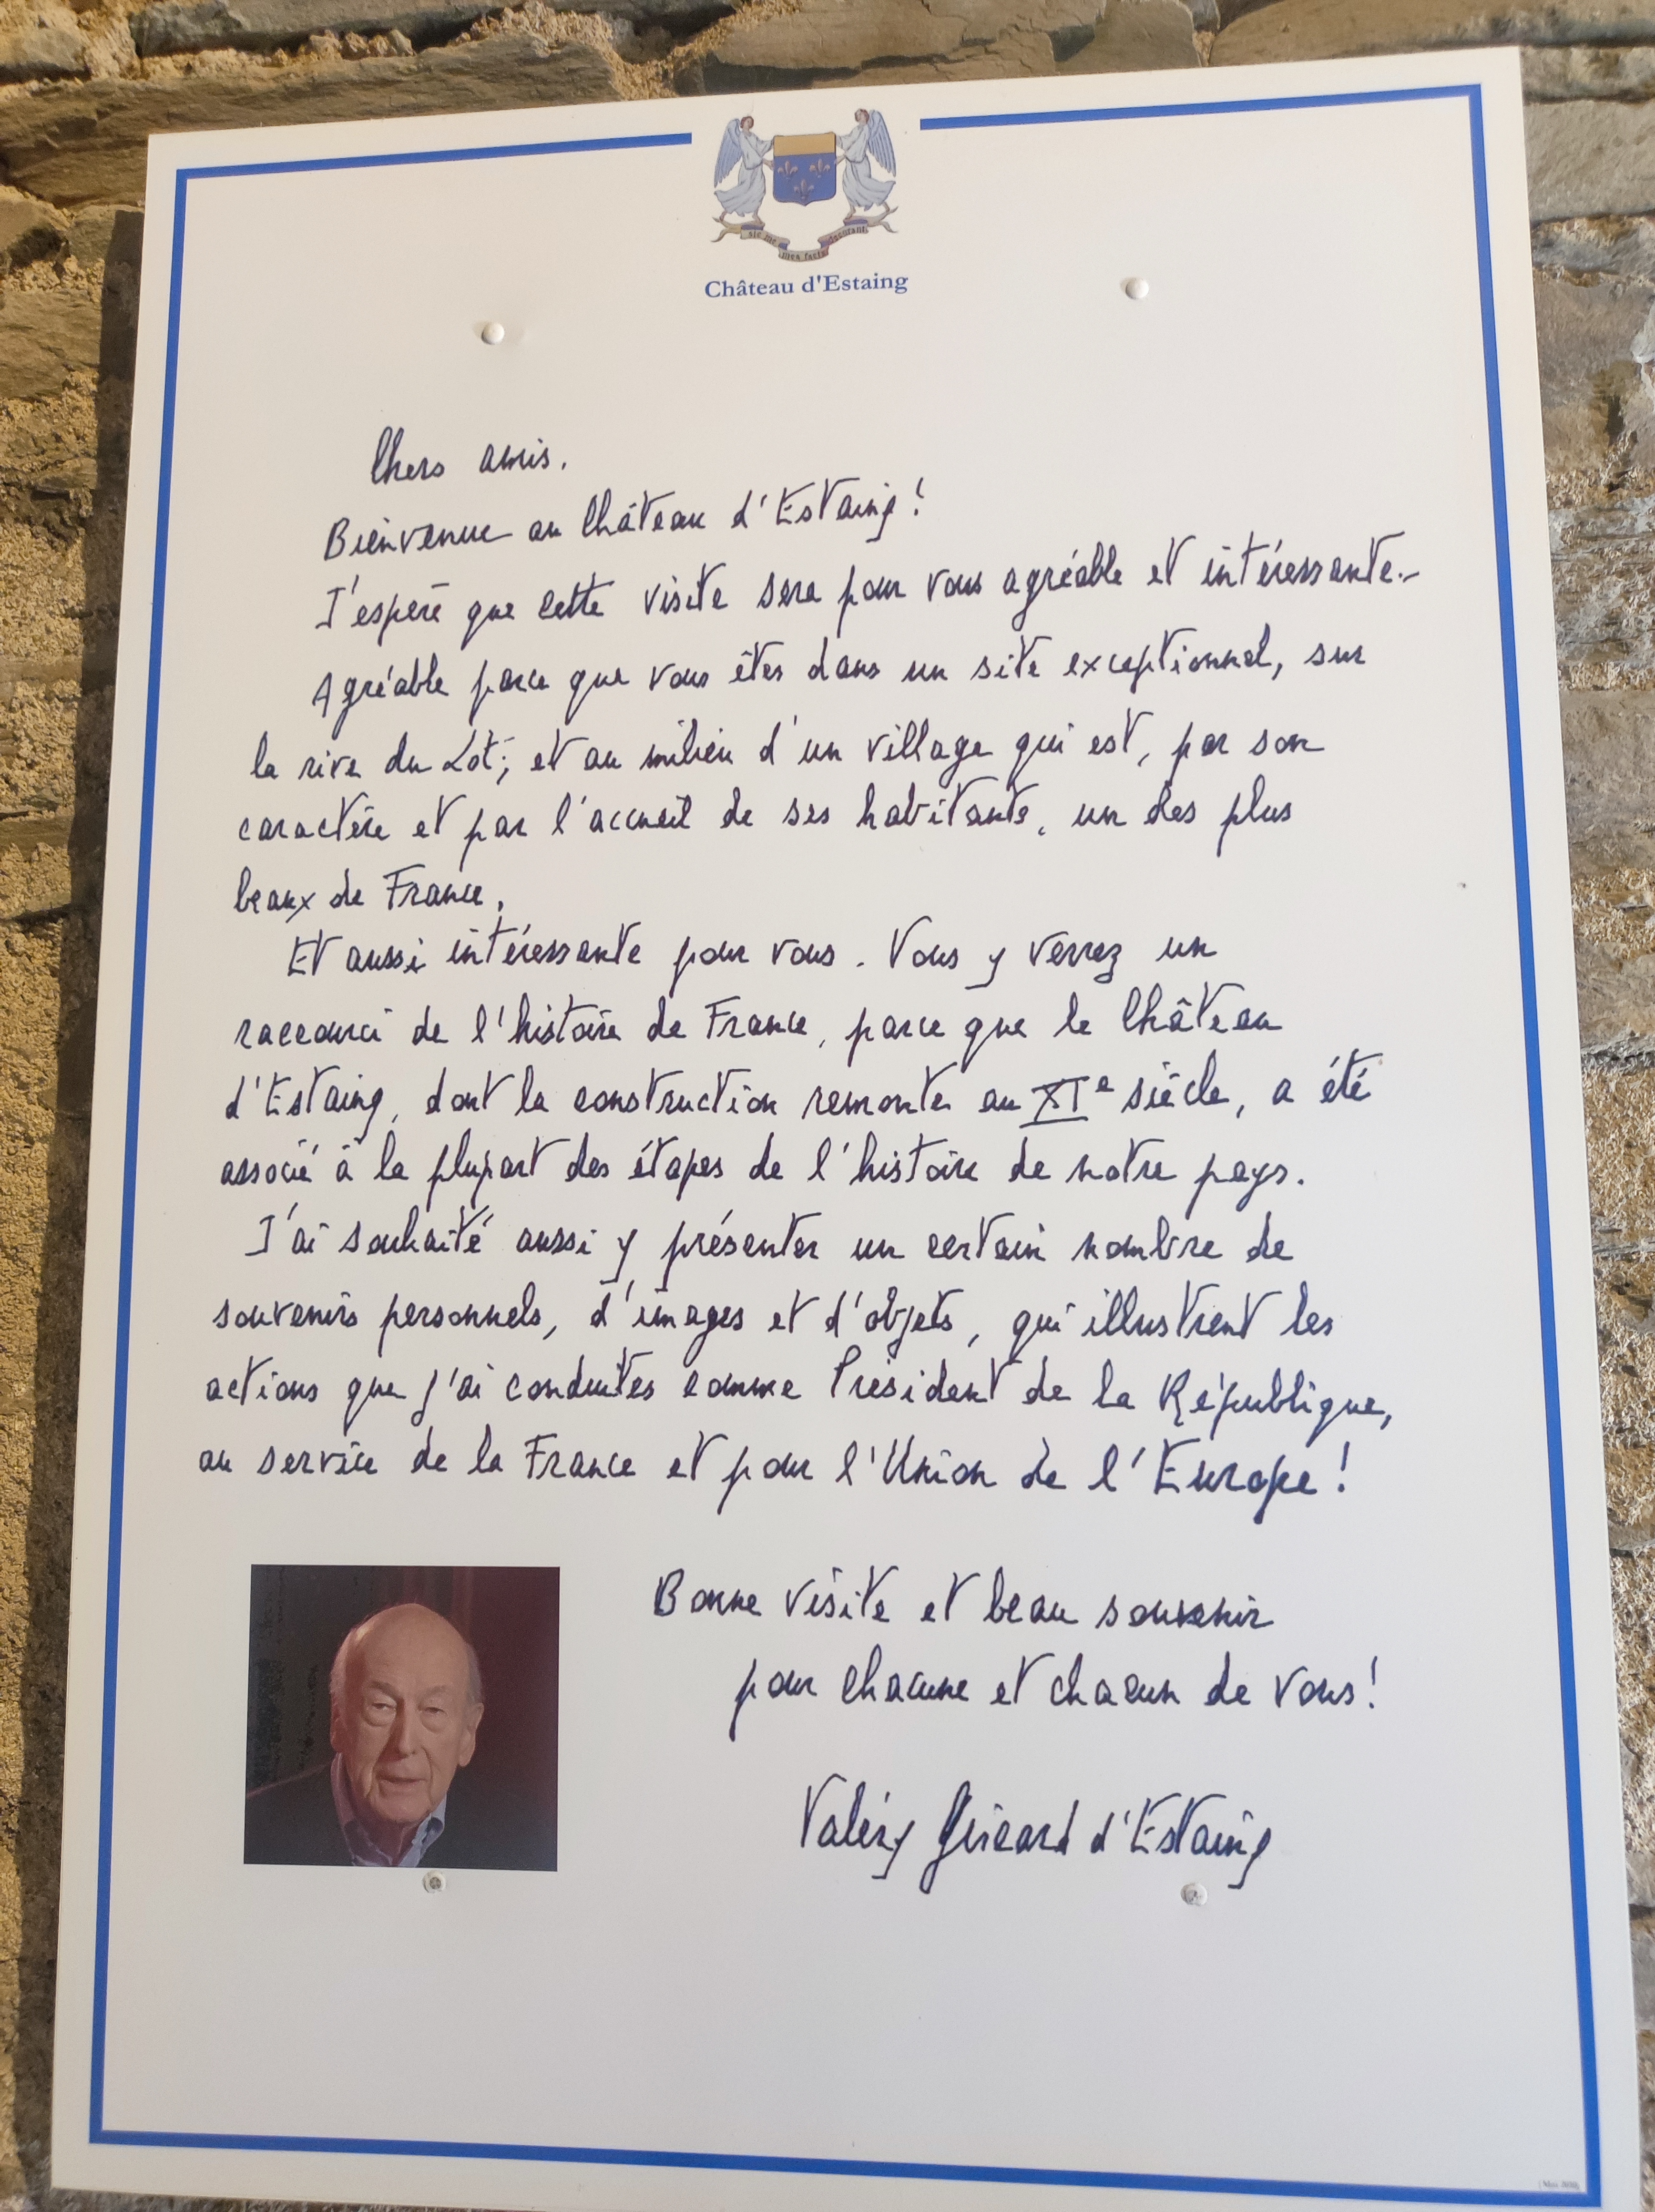 sic me mea facta decorant
Château d'Estaing
Chers amis.
Bienvenue au Château d'Estaing !
J'espère que cette visite sera pour vous agréable et intéressante.-
Agréable parce que vous êtes dans un site exceptionnel, sur
la rive du Lot; et au milieu d'un village qui est, par son
caractère et par l'accueil de ses habitants, un des plus
beaux de France.
Et aussi intéressante pour vous. Vous y verrez un
raccourci de l'histoire de France, parce que le Château
d'Estaing, dont la construction remonte au XIe siècle, a été
associé à la plupart des étapes de l'histoire de notre pays.
J'ai souhaité aussi y présenter un certain nombre de
souvenirs personnels, d'images et d'objets, qui illustrent les
actions que j'ai conduites comme Président de la République,
au service de la France et pour l'Union de l'Europe !
Bonne visite et beau souvenir
pour chacune et chacun de vous !
Valéry Giscard d'Estaing